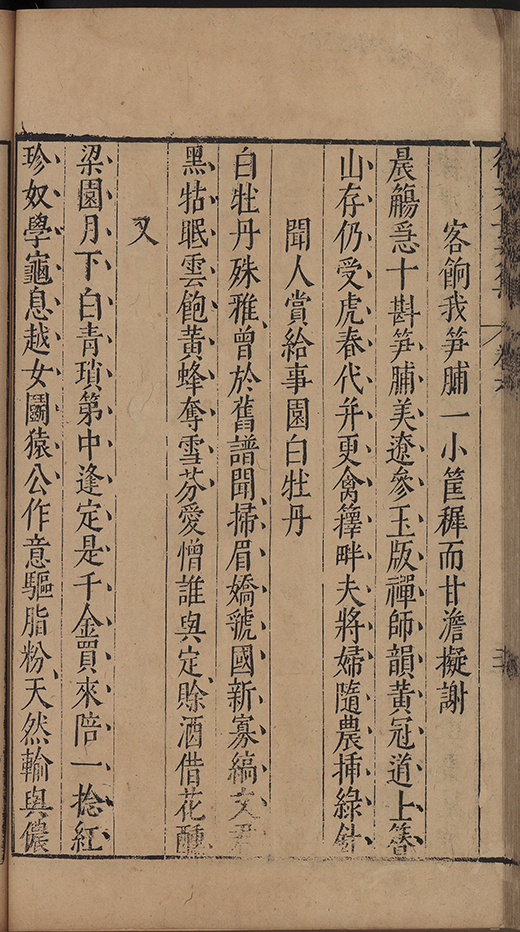 客餉我笋脯一小筐穉而甘澹擬謝
晨觴急十斟笋脯美遼參玉版禪師韻黄冠道上簪
山存仍受虎春代并更禽籜畔夫將婦隨農插綠針
聞人賞給事園白牡丹
白牡丹殊雅曾於舊譜聞掃眉嬌虢國新寡縞文君
黑牯眠雲飽黄蜂奪雪芬愛憎誰與定賒酒借花醺
又
梁園月下白青瑣第中逢定是千金買來陪一捻紅
珍奴學龜息越女鬭猿公作意驅脂粉天然輸與儂